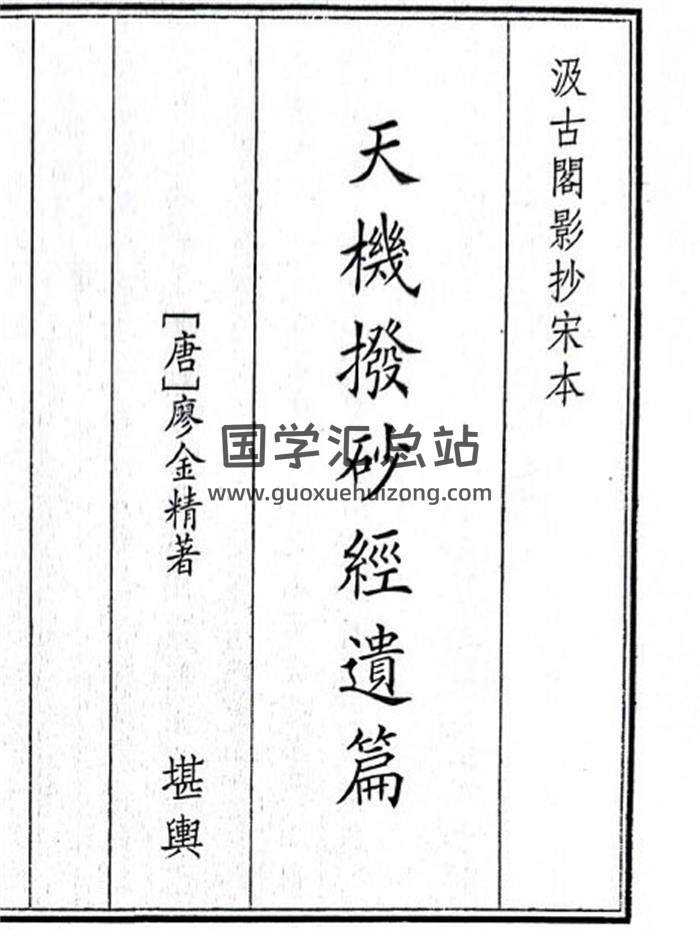 汲古閣影抄宋本
天機撥砂經遺篇
[唐]廖金精著 堪輿
国学汇总站
www.guoxuehuizong.com